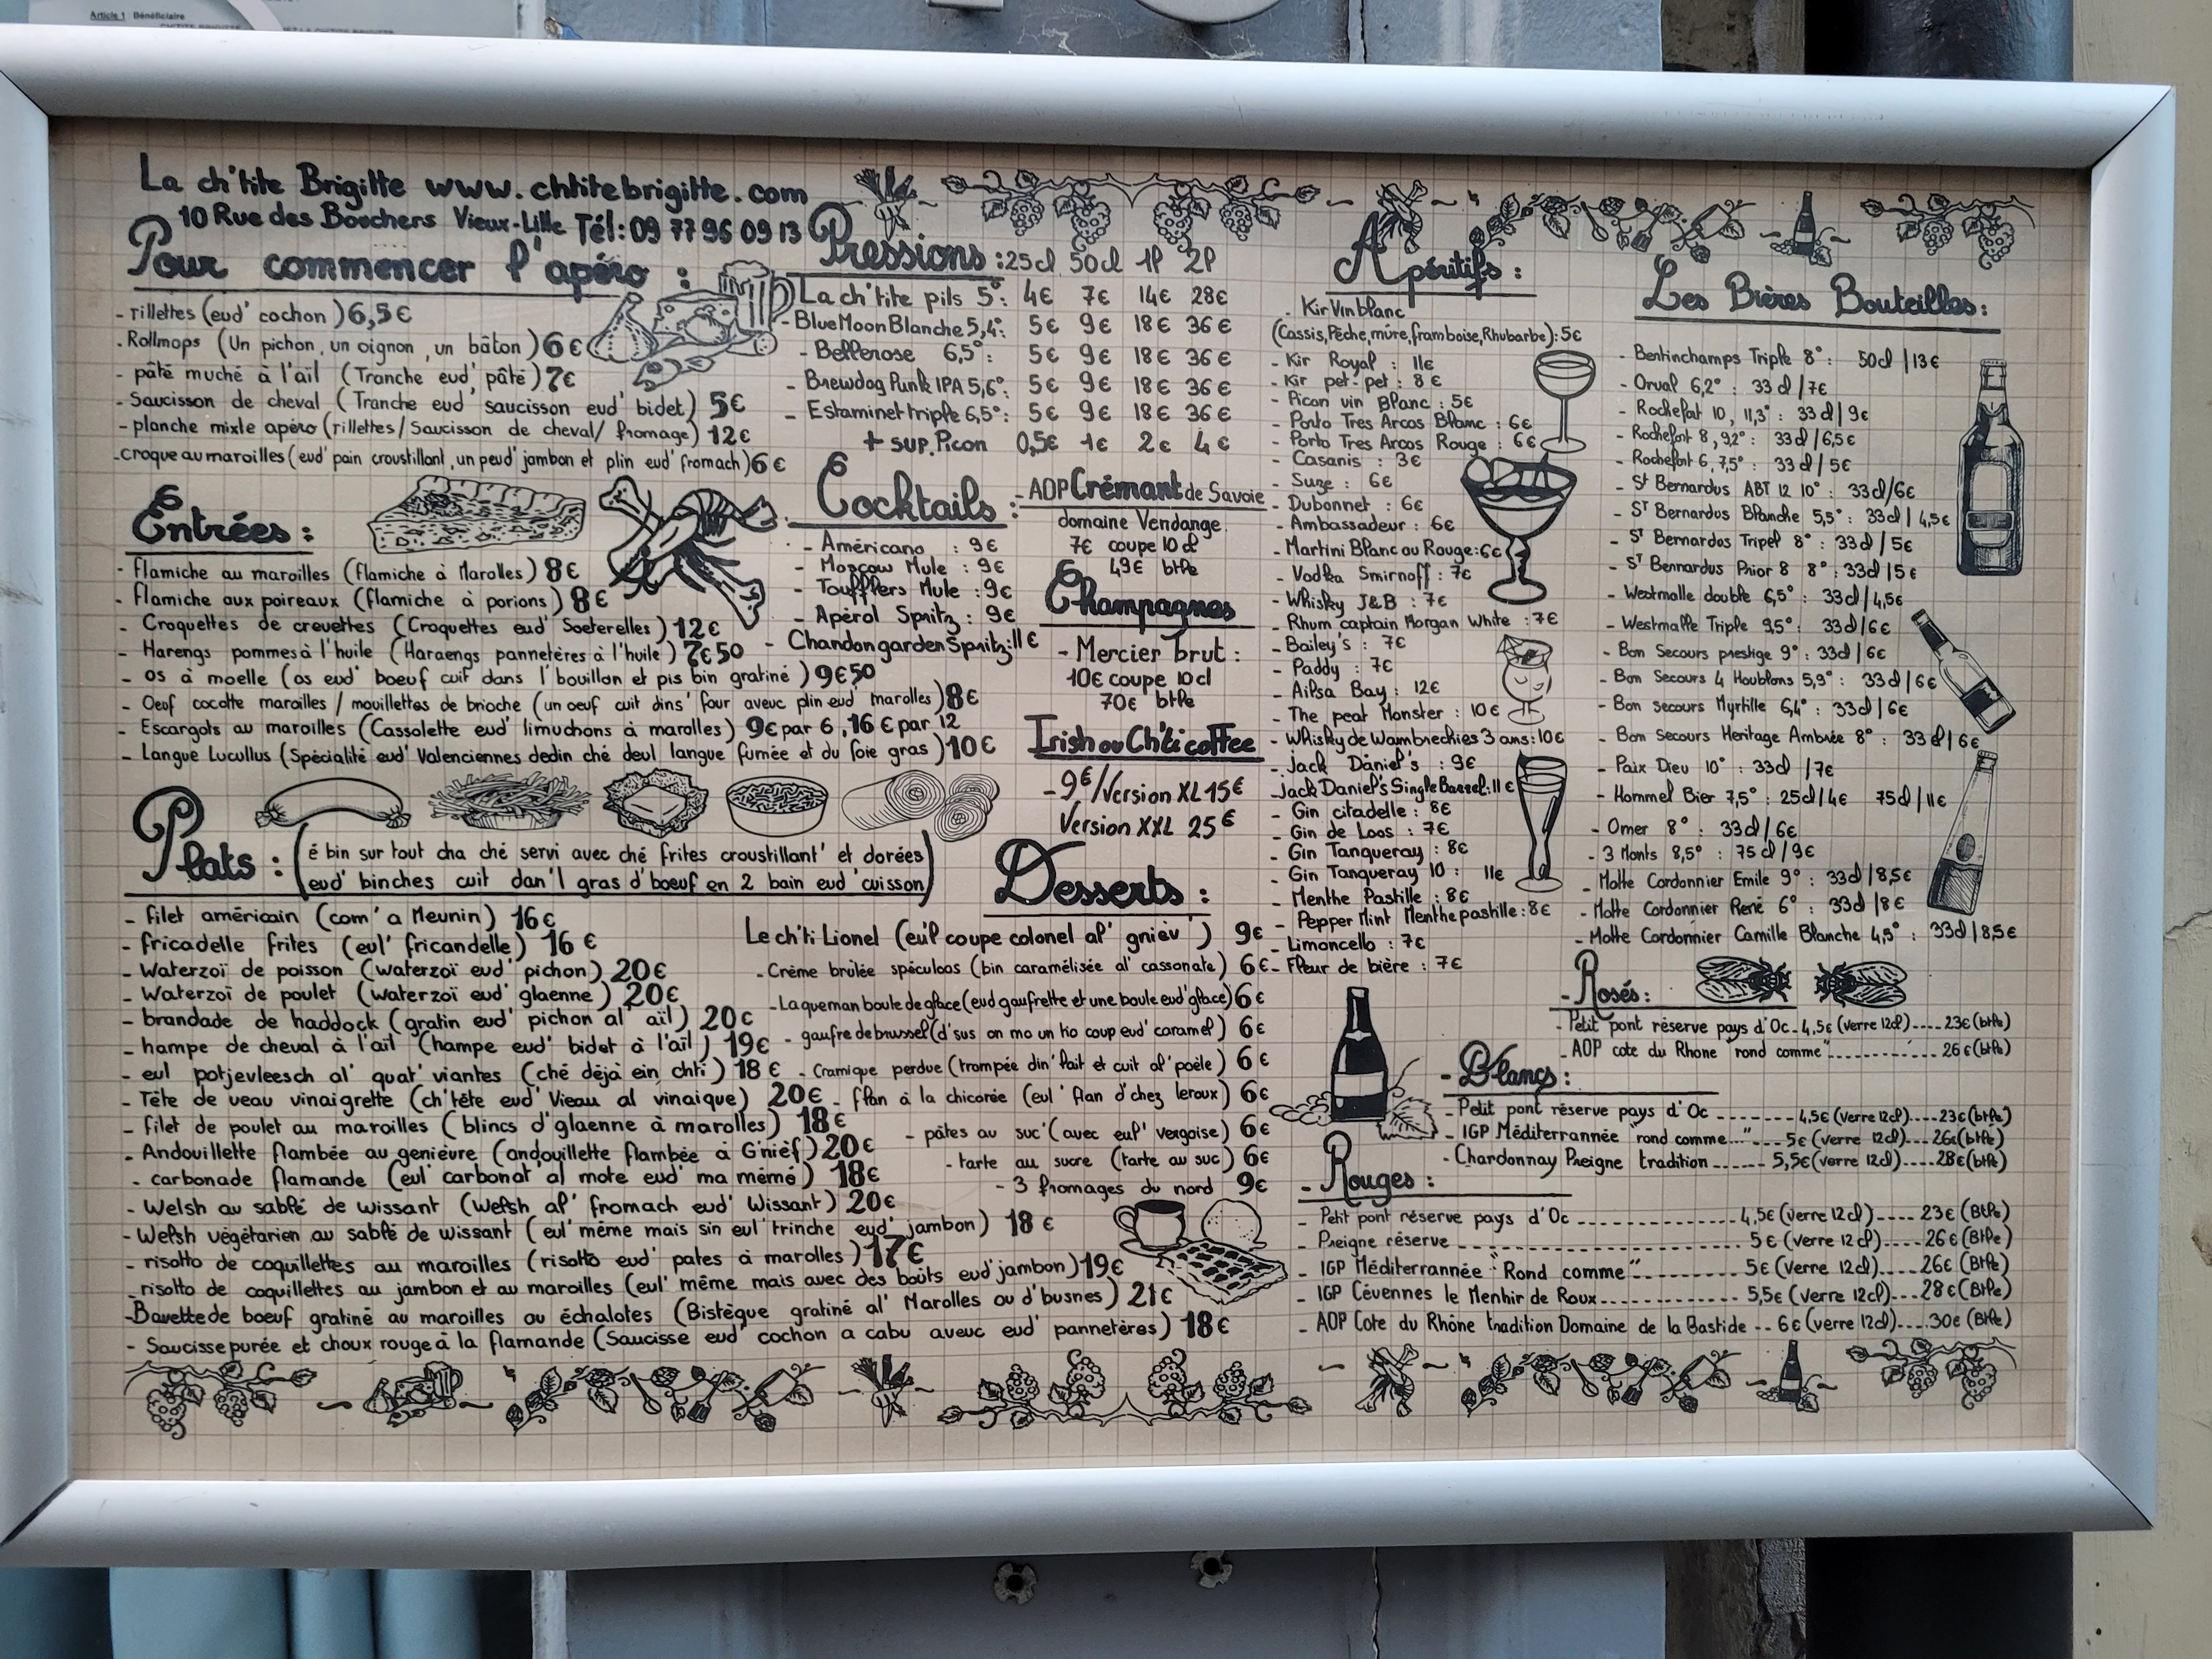 Article 1 Bénéficiaire
La ch'tite Brigitte www.chtitebrigitte.com
10 Rue des Bouchers Vieux-Lille Tél: 09 77 96 09 13
Pour commencer l'apéro :
- rillettes (eud' cochon) 6,5€
- Rollmops (Un pichon, un oignon, un bâton) 6€
- pâté muché à l'ail (Tranche eud' pâté) 7€
- Saucisson de cheval (Tranche eud' saucisson eud' bidet) 5€
- planche mixte apéro (rillettes/Saucisson de cheval/ fromage) 12€
- croque au maroilles (eud' pain croustillant, un peud' jambon et plin eud' fromach) 6€
Entrées :
- Flamiche au maroilles (flamiche à Marolles) 8€
- Flamiche aux poireaux (flamiche à porions) 8€
- Croquettes de crevettes (Croquettes eud' Soeterelles) 12€
- Harengs pommes à l'huile (Haraengs pannetères à l'huile) 7€50
- os à moelle (os eud' boeuf cuit dans l'bouillon et pis bin gratiné) 9€50
- Oeuf cocotte maroilles / mouillettes de brioche (un oeuf cuit dins' four aveuc plin eud' marolles) 8€
- Escargots au maroilles (Cassolette eud' limuchons à marolles) 9€ par 6, 16€ par 12
- Langue Lucullus (Spécialité eud' Valenciennes dedin ché deul langue fumée et du foie gras) 10€
Plats : (é bin sur tout cha ché servi avec ché frites croustillant' et dorées
eud' binches cuit dan'l gras d'boeuf en 2 bain eud' cuisson)
- filet américain (com' a Meunin) 16€
- fricadelle frites (eul' fricandelle) 16€
- Waterzoï de poisson (waterzoï eud' pichon) 20€
- Waterzoï de poulet (waterzoï eud' glaenne) 20€
- brandade de haddock (gratin eud' pichon al' aïl) 20€
- hampe de cheval à l'aïl (hampe eud' bidet à l'aïl) 19€
- eul potjevleesch al' quat' viantes (ché déjà ein chti) 18€
- Tête de veau vinaigrette (ch'tête eud' Vieau al vinaique) 20€
- filet de poulet au maroilles (blincs d'glaenne à marolles) 18€
- Andouillette flambée au genièvre (andouillette flambée à G'nièf) 20€
- carbonade flamande (eul' carbonat' al mote eud' ma mémé) 18€
- Welsh au sablé de wissant (Welsh al' fromach eud' Wissant) 20€
- Welsh végétarien au sablé de wissant (eul' même mais sin eul' trinche eud' jambon) 18€
- risotto de coquillettes au maroilles (risotto eud' pates à marolles) 17€
- risotto de coquillettes au jambon et au maroilles (eul' même mais avec des boûts eud' jambon) 19€
- Bavette de boeuf gratiné au maroilles ou échalotes (Bistèque gratiné al' Marolles ou d'busnes) 21€
- Saucisse purée et choux rouge à la flamande (Saucisse eud' cochon a cabu aveuc eud' pannetères) 18€
Pressions : 25cl 50cl 1l 2l
La ch'tite pils 5°: 4€ 7€ 14€ 28€
- Blue Moon Blanche 5,4°: 5€ 9€ 18€ 36€
- Bellerose 6,5°: 5€ 9€ 18€ 36€
- Brewdog Punk IPA 5,6°: 5€ 9€ 18€ 36€
- Estaminet triple 6,5°: 5€ 9€ 18€ 36€
+ sup. Picon 0,5€ 1€ 2€ 4€
Cocktails :
- Américano : 9€
- Moscow Mule : 9€
- Toufflers Mule : 9€
- Apérol Spritz : 9€
- Chandon garden Spritz : 11€
- AOP Crémant de Savoie
domaine Vendange.
7€ coupe 10cl
49€ btlle
Champagnes
- Mercier brut :
10€ coupe 10cl
70€ btlle
Irish ou Ch'ti coffee
- 9€/Version XL 15€
Version XXL 25€
Desserts :
Le ch'ti Lionel (eul' coupe colonel al' gnièv') 9€
- Crème brûlée spéculoos (bin caramélisée al' cassonate) 6€
- La queman boule de glace (eud gaufrette et une boule eud' glace) 6€
- gaufre de brussel (d'sus on mo un tio coup eud' caramel) 6€
- Cramique perdue (trompée din' lait et cuit al' poële) 6€
- flan à la chicorée (eul' flan d'chez leroux) 6€
- pâtes au suc' (avec eul' vergoise) 6€
- tarte au sucre (tarte au suc) 6€
- 3 fromages du nord 9€
Apéritifs :
- Kir Vin blanc
(Cassis, Pêche, mûre, framboise, Rhubarbe): 5€
- Kir Royal : 11€
- Kir pet-pet : 8€
- Picon vin Blanc : 5€
- Porto Tres Arcos Blanc : 6€
- Porto Tres Arcos Rouge : 6€
- Casanis : 3€
- Suze : 6€
- Dubonnet : 6€
- Ambassadeur : 6€
- Martini Blanc ou Rouge : 6€
- Vodka Smirnoff : 7€
- Whisky J&B : 7€
- Rhum captain Morgan White : 7€
- Bailey's : 7€
- Paddy : 7€
- Ailsa Bay : 12€
- The peat Monster : 10€
- Whisky de Wambrechies 3 ans : 10€
- Jack Daniel's : 9€
- Jack Daniel's Single Barrel : 11€
- Gin citadelle : 8€
- Gin de Loos : 7€
- Gin Tanqueray : 8€
- Gin Tanqueray 10 : 11€
- Menthe Pastille : 8€
- Pepper Mint Menthe pastille : 8€
- Limoncello : 7€
- Fleur de bière : 7€
Les Bières Bouteilles :
- Bertinchamps Triple 8° : 50cl / 13€
- Orval 6,2° : 33cl / 7€
- Rochefort 10, 11,3° : 33cl / 9€
- Rochefort 8, 9,2° : 33cl / 6,5€
- Rochefort 6, 7,5° : 33cl / 5€
- St Bernardus ABT 12 10° : 33cl / 6€
- ST Bernardus Blanche 5,5° : 33cl / 4,5€
- ST Bernardus Tripel 8° : 33cl / 5€
- ST Bernardus Prior 8 8° : 33cl / 5€
- Westmalle double 6,5° : 33cl / 4,5€
- Westmalle Triple 9,5° : 33cl / 6€
- Bon Secours prestige 9° : 33cl / 6€
- Bon Secours 4 Houblons 5,9° : 33cl / 6€
- Bon Secours Myrtille 6,4° : 33cl / 6€
- Bon Secours Heritage Ambrée 8° : 33cl / 6€
- Paix Dieu 10° : 33cl / 7€
- Hommel Bier 7,5° : 25cl / 4€ 75cl / 11€
- Omer 8° : 33cl / 6€
- 3 Monts 8,5° : 75cl / 9€
- Motte Cordonnier Emile 9° : 33cl / 8,5€
- Motte Cordonnier René 6° : 33cl / 8€
- Motte Cordonnier Camille Blanche 4,5° : 33cl / 8,5€
- Rosés :
- Petit pont réserve pays d'Oc - 4,5€ (verre 12cl) ---- 23€ (btlle)
- AOP cote du Rhone "rond comme" ---------- 26€ (btlle)
- Blancs :
- Petit pont réserve pays d'Oc ------- 4,5€ (verre 12cl) ---- 23€ (btlle)
- IGP Méditerrannée "rond comme..." --- 5€ (verre 12cl) --- 26€ (btlle)
- Chardonnay Preigne tradition ------ 5,5€ (verre 12cl) ---- 28€ (btlle)
- Rouges :
- Petit pont réserve pays d'Oc --------------- 4,5€ (verre 12cl) ---- 23€ (Btlle)
- Preigne réserve ------------------------- 5€ (verre 12cl) ---- 26€ (Btlle)
- IGP Méditerrannée "Rond comme" ---------- 5€ (verre 12cl) ---- 26€ (Btlle)
- IGP Cévennes le Menhir de Roux ------------ 5,5€ (verre 12cl) --- 28€ (Btlle)
- AOP Cote du Rhône tradition Domaine de la Bastide -- 6€ (verre 12cl) ---- 30€ (Btlle)